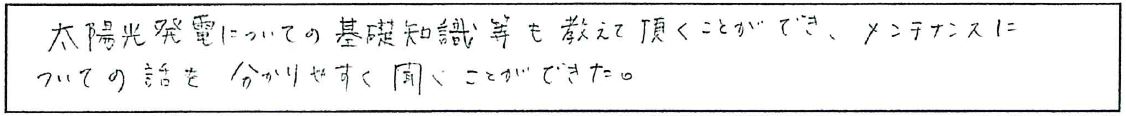 太陽光発電についての基礎知識等も教えて頂くことができ、メンテナンスに
ついての話を分かりやすく聞くことができた。